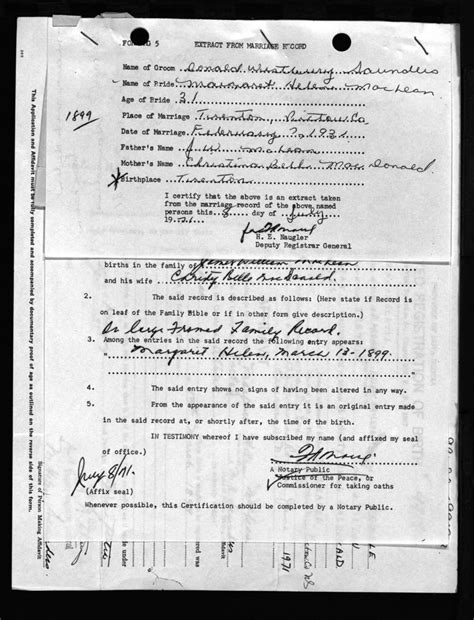 FORM D 5 EXTRACT FROM MARRIAGE RECORD
Name of Groom Donald Westbury Saunders
Name of Bride Margaret Helen MacLean
Age of Bride 31
1899
Place of Marriage Trenton, Pictou Co
Date of Marriage February 1931
Father's Name J. W. McLean
Mother's Name Christina Bell MacDonald
Birthplace Trenton
I certify that the above is an extract taken
from the marriage record of the above named
persons this 8 day of July
1971.
H. E. Naugler
Deputy Registrar General
births in the family of James William MacLean
and his wife Christy Belle MacDonald
2. The said record is described as follows: (Here state if Record is
on leaf of the Family Bible or if in other form give description).
In large Framed Family Record.
3. Among the entries in the said record the following entry appears:
Margaret Helen, March 13-1899.
4. The said entry shows no signs of having been altered in any way.
5. From the appearance of the said entry it is an original entry made
in the said record at, or shortly after, the time of the birth.
IN TESTIMONY whereof I have subscribed my name (and affixed my seal
of office.)
July 8/71.
(Affix seal)
A Notary Public
Justice of the Peace, or
Commissioner for taking oaths
Whenever possible, this Certification should be completed by a Notary Public.
This Application and Affidavit must be fully completed and accompanied by documentary proof of age as outlined on the reverse side of this form.
Signature of Person Making Affidavit
1971